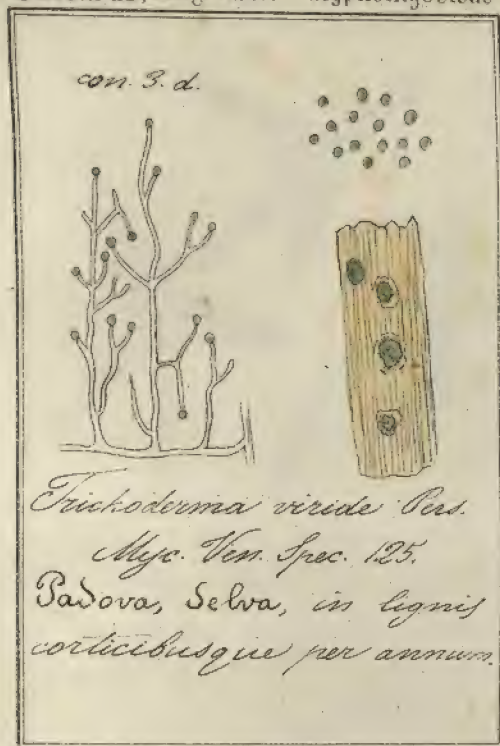 con. 3. d.
Trichoderma viride Pers.
Myc. Ven. Spec. 125.
Padova, Selva, in lignis
corticibusque per annum.